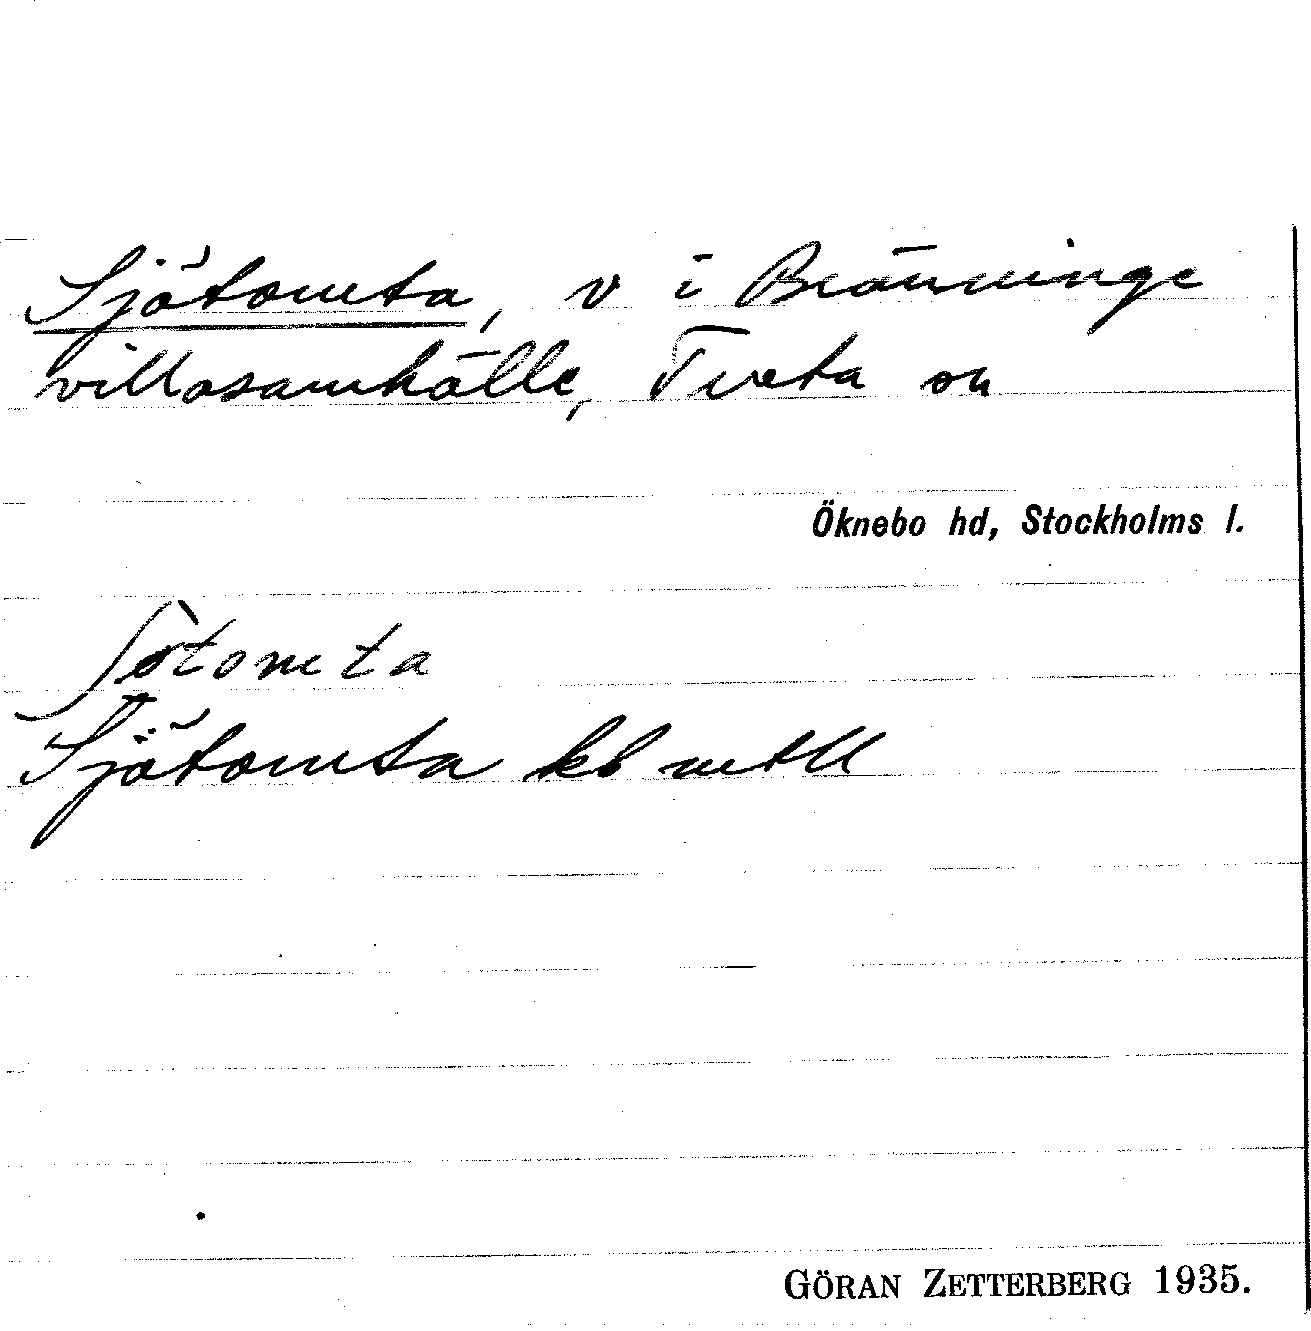 Sjötomta, v i Bränninge
villasamhälle, Tveta sn
Öknebo hd, Stockholms l.
Sjötomta kb mtll
GÖRAN ZETTERBERG 1935.